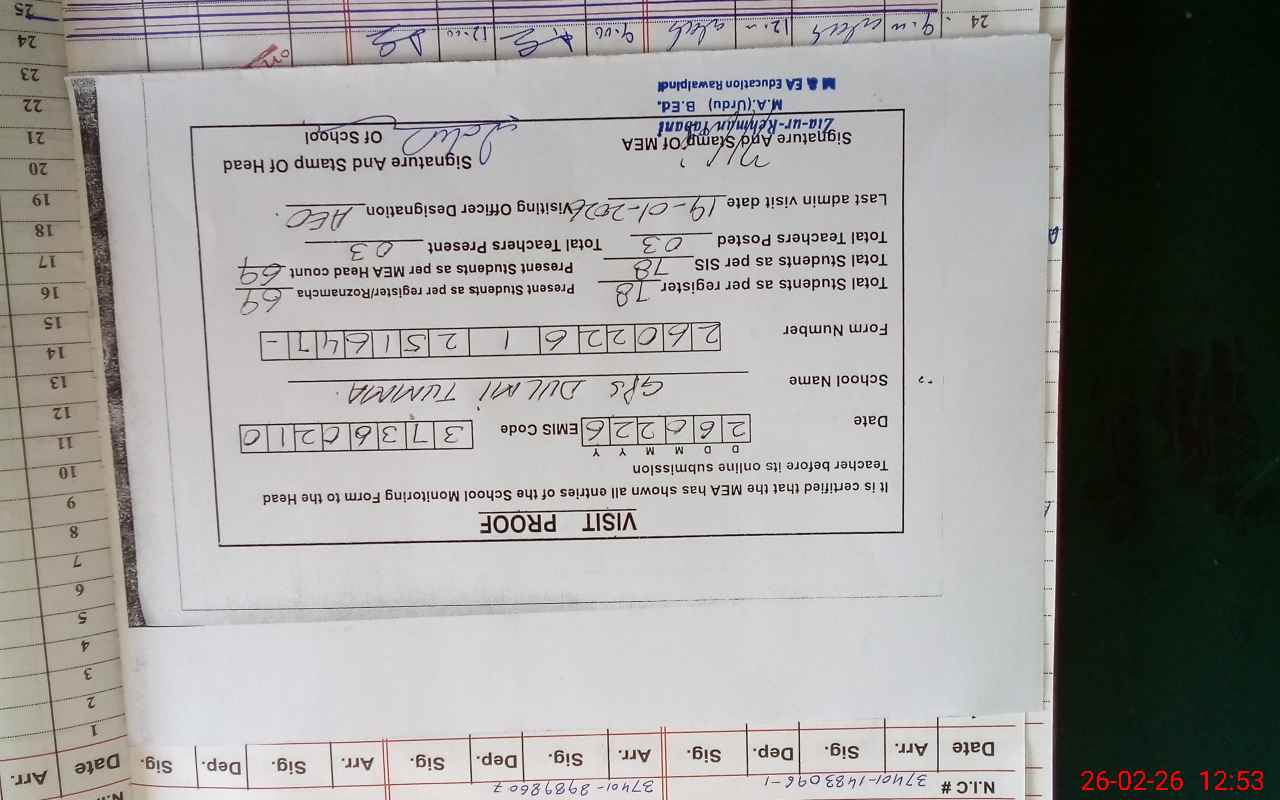 N.I.C # 37401-1483096-1 37401-8989860 7
Date Arr. Sig. Dep. Sig. Arr. Sig. Dep. Sig. Arr. Sig. Dep. Sig.
Date Arr.
1
2
3
4
5
6
7
8
9
10
11
12
13
14
15
16
17
18
19
20
21
22
23
24
25
VISIT PROOF
It is certified that the MEA has shown all entries of the School Monitoring Form to the Head
Teacher before its online submission
D D M M Y Y
Date 260226 EMIS Code 37360210
School Name GPS DULMI TUMMA.
Form Number 260226 1 251647-
Total Students as per register 78 Present Students as per register/Roznamcha 69
Total Students as per SIS 78 Present Students as per MEA Head count 69
Total Teachers Posted 03 Total Teachers Present 03
Last admin visit date 19-01-2026 Visiting Officer Designation AEO
Signature And Stamp Of MEA
Signature And Stamp Of Head
Of School
Zia-ur-Rehman Tabani
M.A.(Urdu) B.Ed.
M & EA Education Rawalpindi
24 9.00 12.00 9.00 12.00
26-02-26 12:53